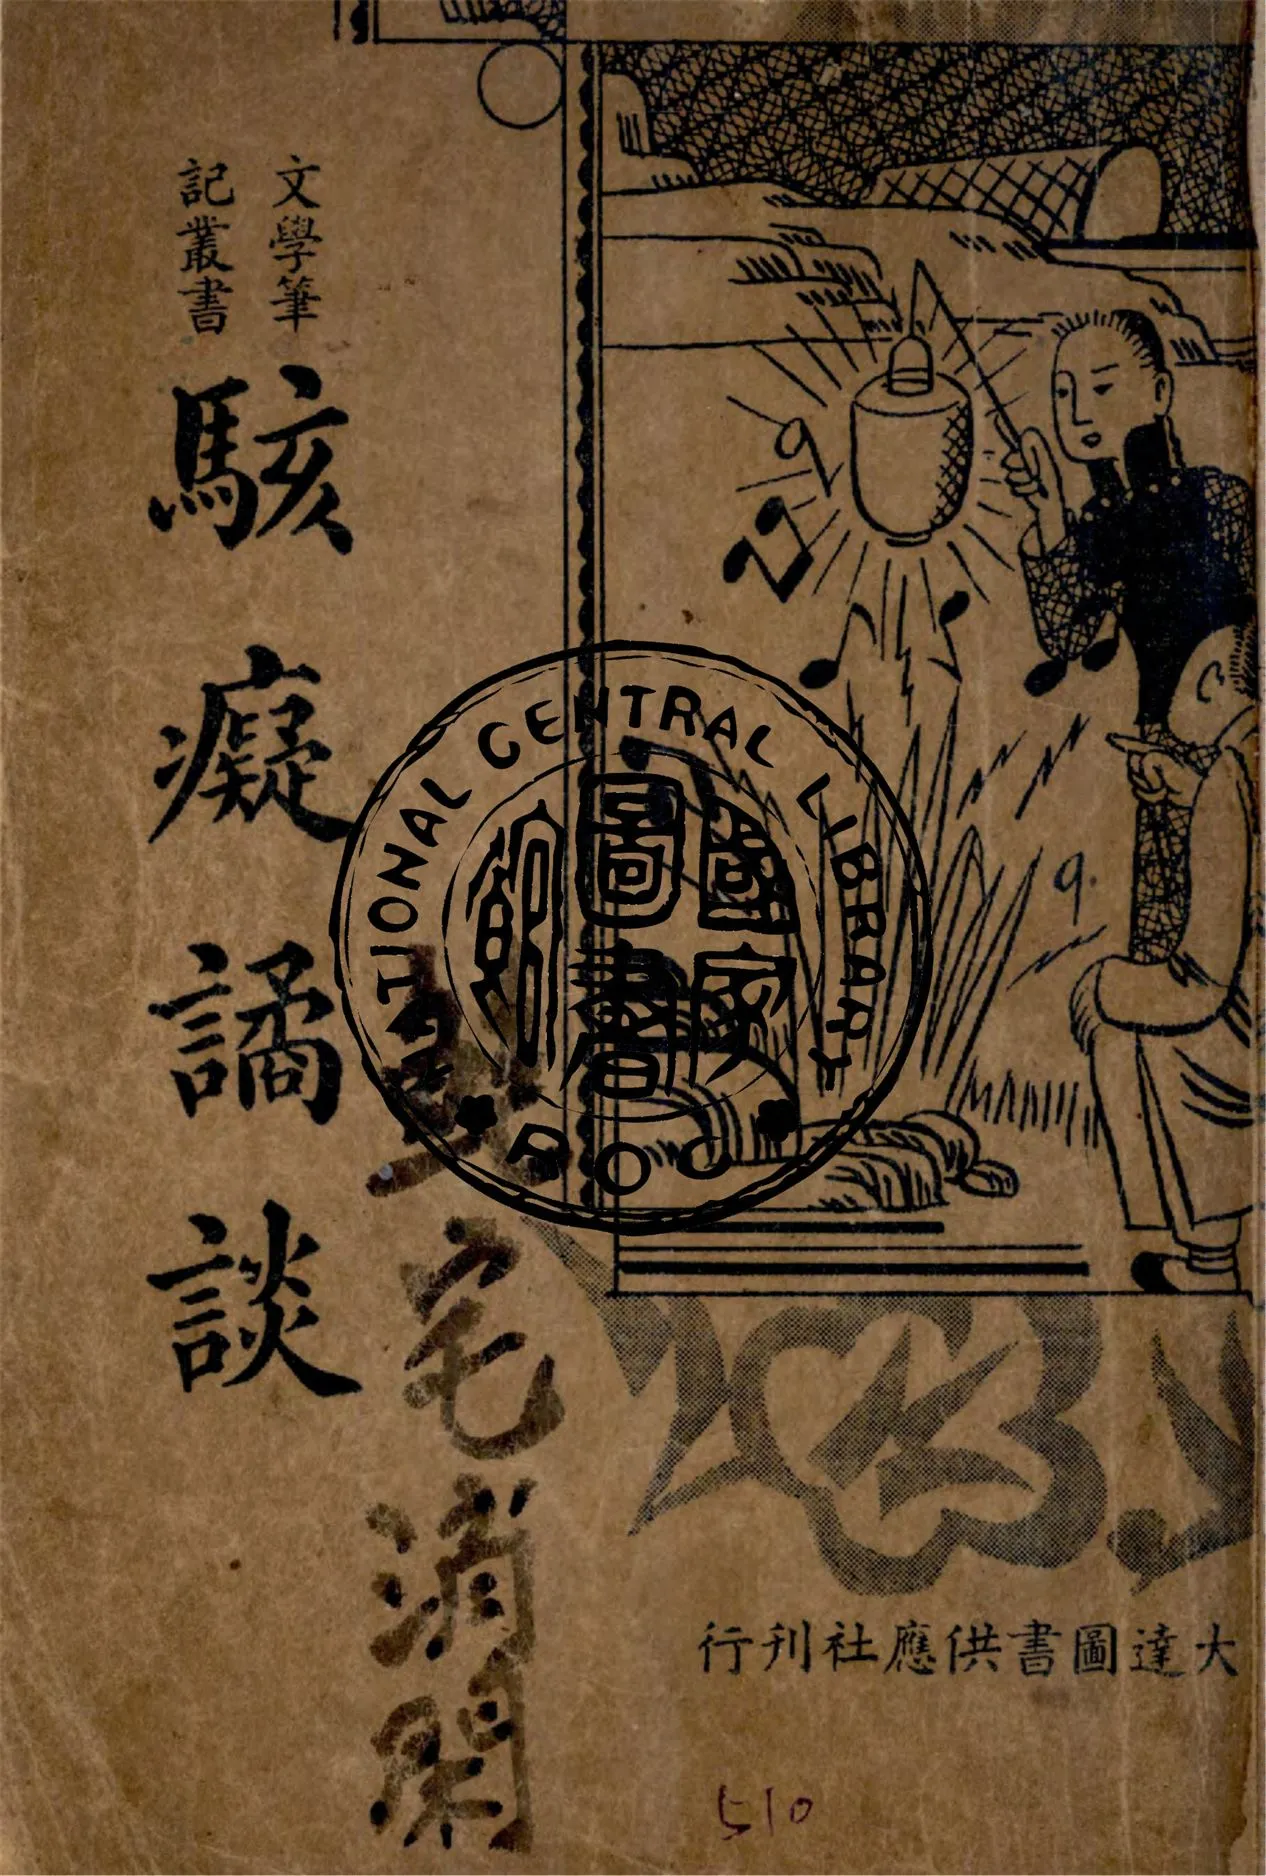 文學筆
記叢書
駭癡譎談
宅消閑
大達圖書供應社刊行
NATIONAL CENTRAL LIBRARY
國家圖書館
ROC
510